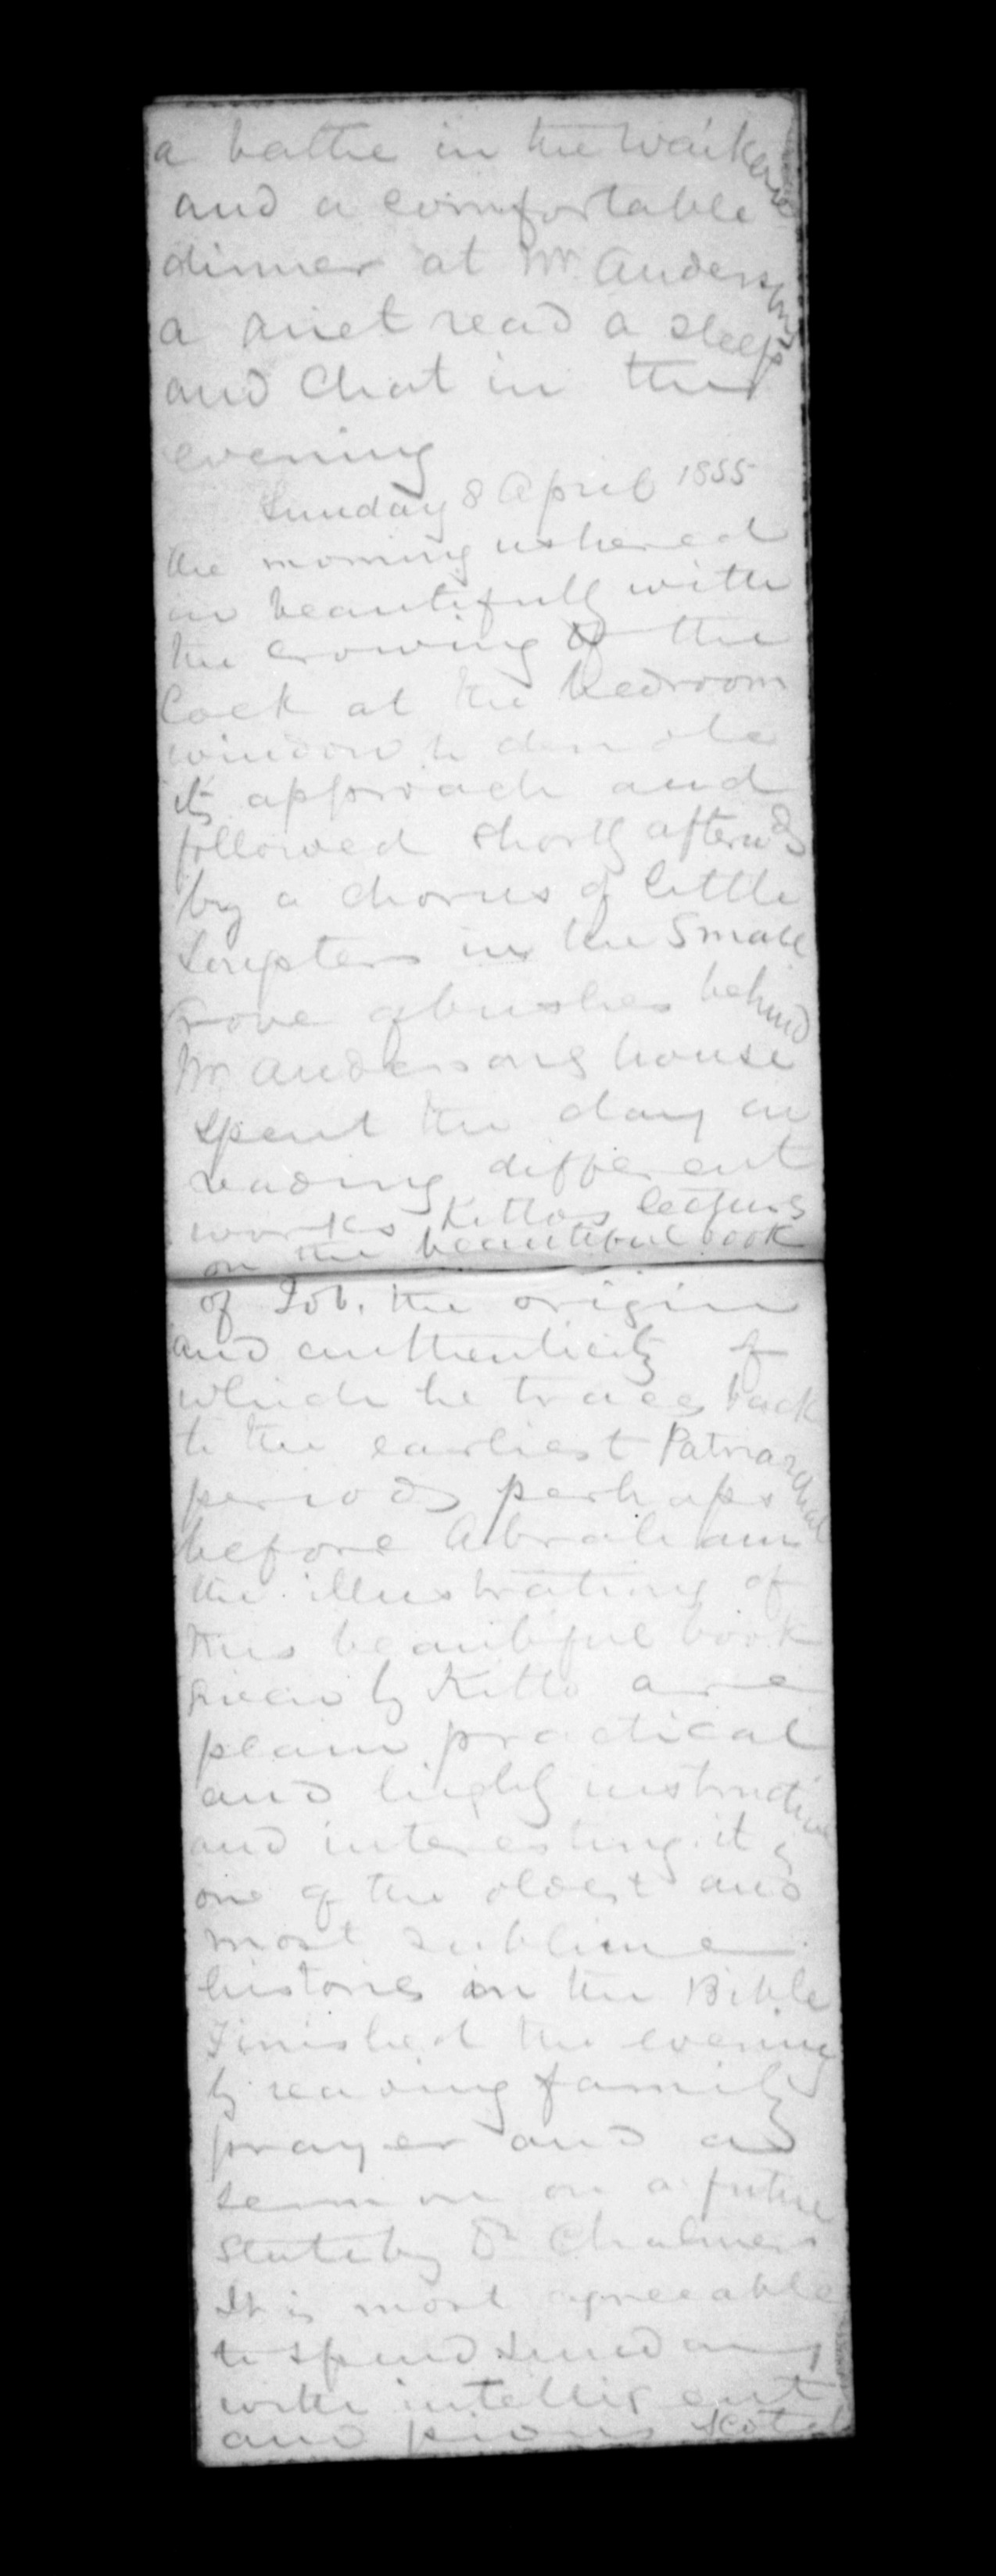 a bathe in the Waikanae
and a comfortable
dinner at Mr. Andersons
a quiet read a sleep
and Chat in the
evening
Sunday 8 April 1855
the morning ushered
in beautifully with
the crowing of the
Cock at the bedroom
window to denote
its approach and
followed shortly afterwds
by a chorus of little
Songsters in the Small
Grove of bushes behind
Mr Andersons house
Spent the day in
reading different
works Kittos lectures
on the beautiful book
of Job. the origin
and authenticity of
which he traces back
to the earliest Patriarchal
periods perhaps
before Abraham
the illustrations of
this beautiful book
given by Kitto are
plain practical
and highly instructive
and interesting. it is
one of the oldest and
most sublime
histories in the Bible
Finished the evening
by reading family
prayer and a
sermon on a future
state by Dr Chalmers
It is most agreeable
to spend Sunday
with intelligent
and pious Scotch